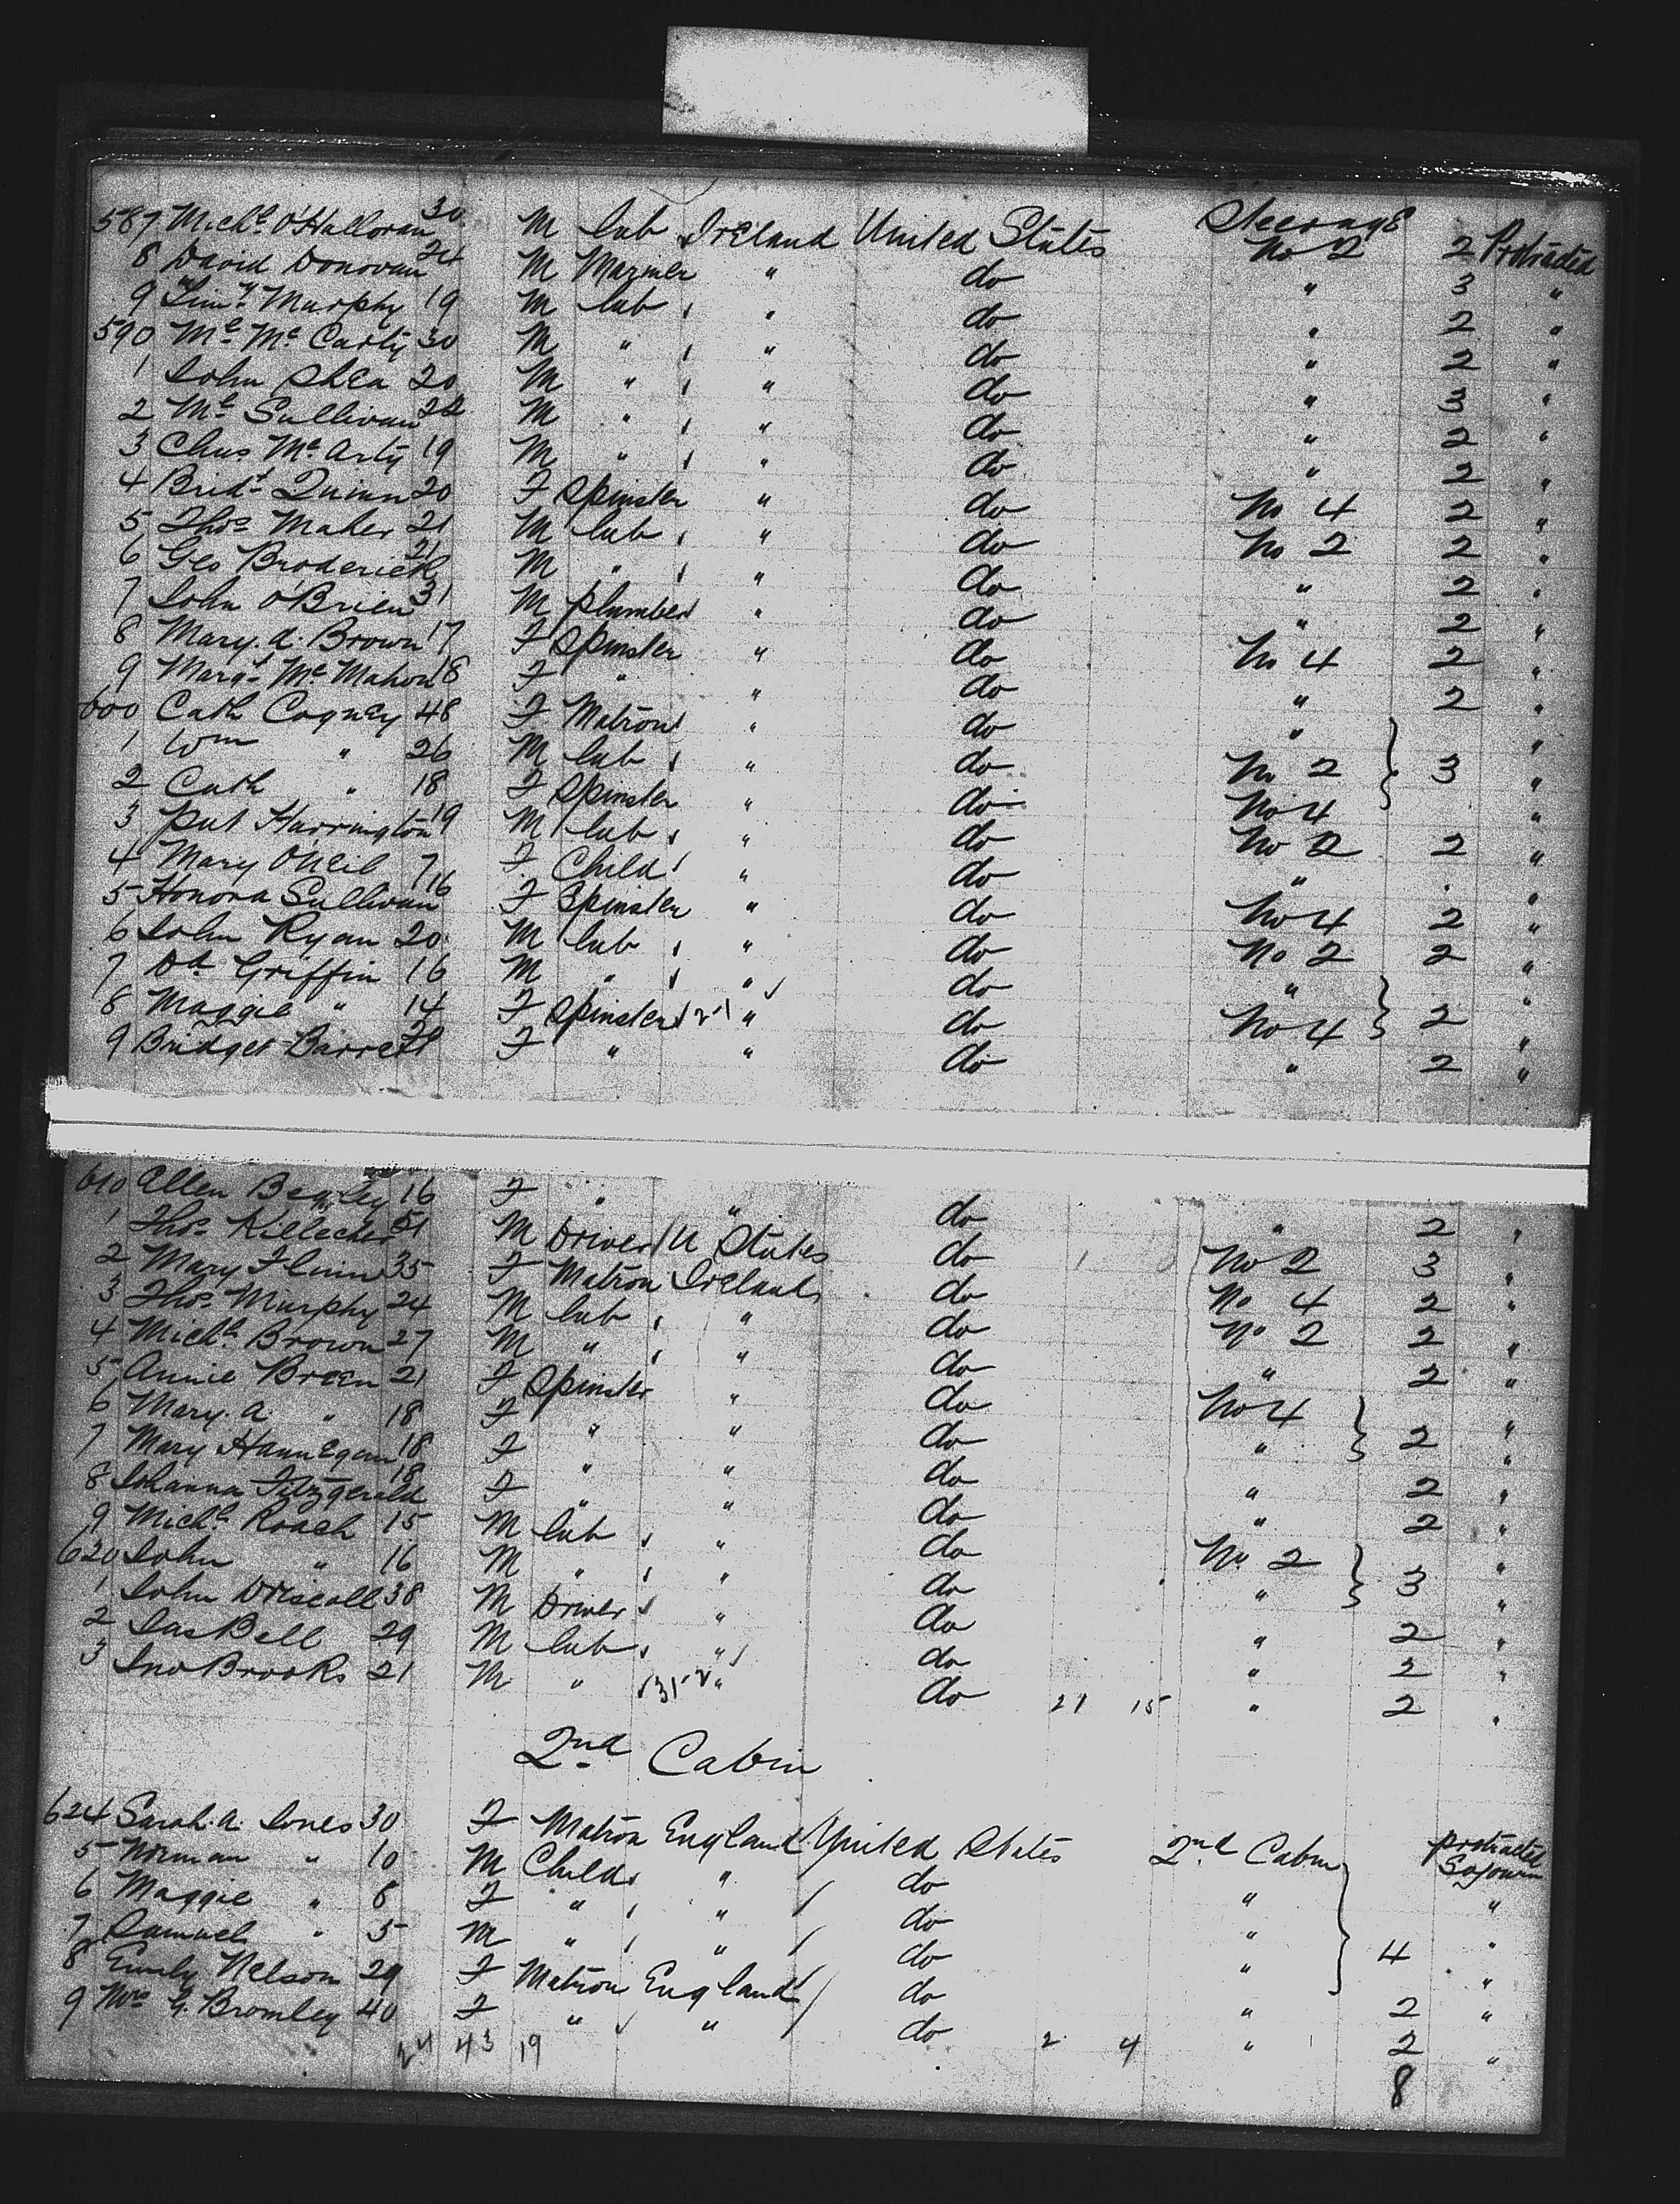 587 Michl. O'Halloran 30 M lab Ireland United States Steerage No 2 2 Protracted
8 David Donovan 24 M Mariner " do " 3 "
9 Timy. Murphy 19 M lab " do " 2 "
590 Ml. Mc Carty 30 M " " do " 2 "
1 John Shea 20 M " " do " 3 "
2 Ml. Sullivan M " " do " 2 "
3 Chas. Mc Arty 19 M " " do " 2 "
4 Bridt. Quinn 20 F Spinster " do No 4 2 "
5 Thos. Maher 21 M lab " do No 2 2 "
6 Geo Broderick 21 M " " do " 2 "
7 John O'Brien 31 M plumber " do " 2 "
8 Mary. A. Brown 17 F Spinster " do No 4 2 "
9 Margt. Mc Mahon 18 F " " do " 2 "
600 Cath Cogney 48 F Matron " do " "
1 Wm " 26 M lab " do No 2 3 "
2 Cath " 18 F Spinster " do No 4 "
3 Pat Harrington 19 M lab " do No 2 2 "
4 Mary ONeil 7 F Child " do " "
5 Honora Sullivan 16 F Spinster " do No 4 2 "
6 John Ryan 20 M lab " do No 2 2 "
7 Griffin 16 M " " do " "
8 Maggie " 14 F Spinster " do No 4 2 "
9 Bridget Barrett F " " do " 2 "
610 Ellen Begley 16 F " " do " 2 "
1 Thos. Killecher 51 M Driver U States do No 2 3 "
2 Mary Flinn 35 F Matron Ireland do No 4 2 "
3 Thos. Murphy 24 M lab " do No 2 2 "
4 Michl. Brown 27 M " " do " 2 "
5 Annie Breen 21 F Spinster " do No 4 "
6 Mary. A. " 18 F " " do " 2 "
7 Mary Hannegan 18 F " " do " 2 "
8 Johanna Fitzgerald 18 F " " do " 2 "
9 Michl. Roach 15 M lab " do No 2 "
620 John " 16 M " " do " 3 "
1 John Driscoll 38 M Driver " do " 2 "
2 Jas Bell 29 M lab " do " 2 "
3 Jno Brooks 21 M " " do 21 15 " 2 "
2nd Cabin
624 Sarah. A. Jones 30 F Matron England United States 2nd Cabin protracted Sojourn
5 Norman " 10 M Child " do " "
6 Maggie " 8 F " " do " "
7 Samuel " 5 M " " do " 4 "
8 Emily Nelson 29 F Matron England do " 2 "
9 Mrs G. Bromley 40 F " " do " 2 "
24 43 19 2 4
8